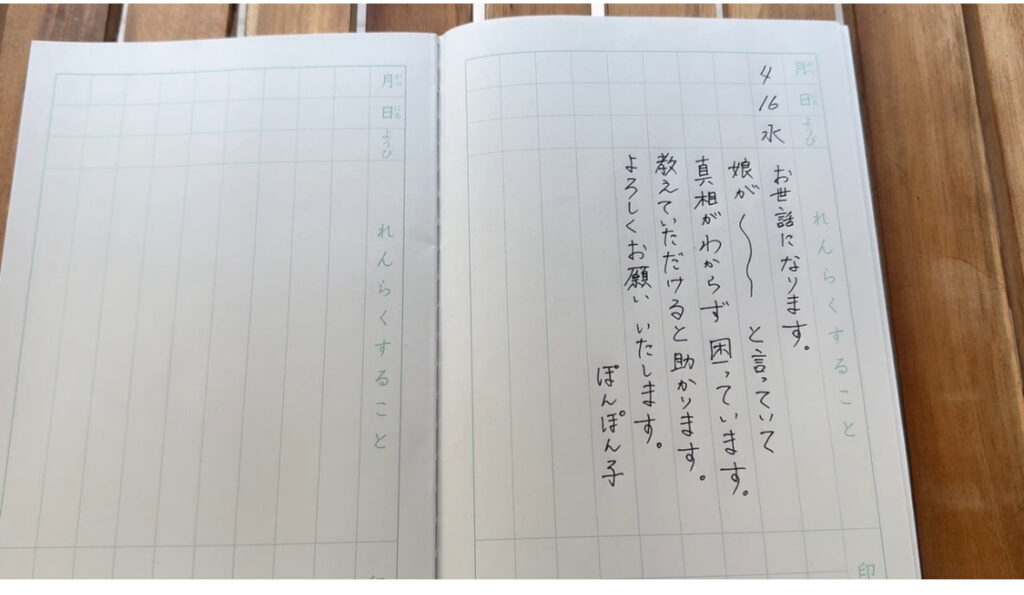 月 がつ
日 にち
ようび
れんらくすること
4
16
水
お世話になります。
娘が 〜 と言っていて
真相がわからず 困っています。
教えていただけると 助かります。
よろしくお願い いたします。
ぽんぽん子
印
月 がつ
日 にち
ようび
れんらくすること